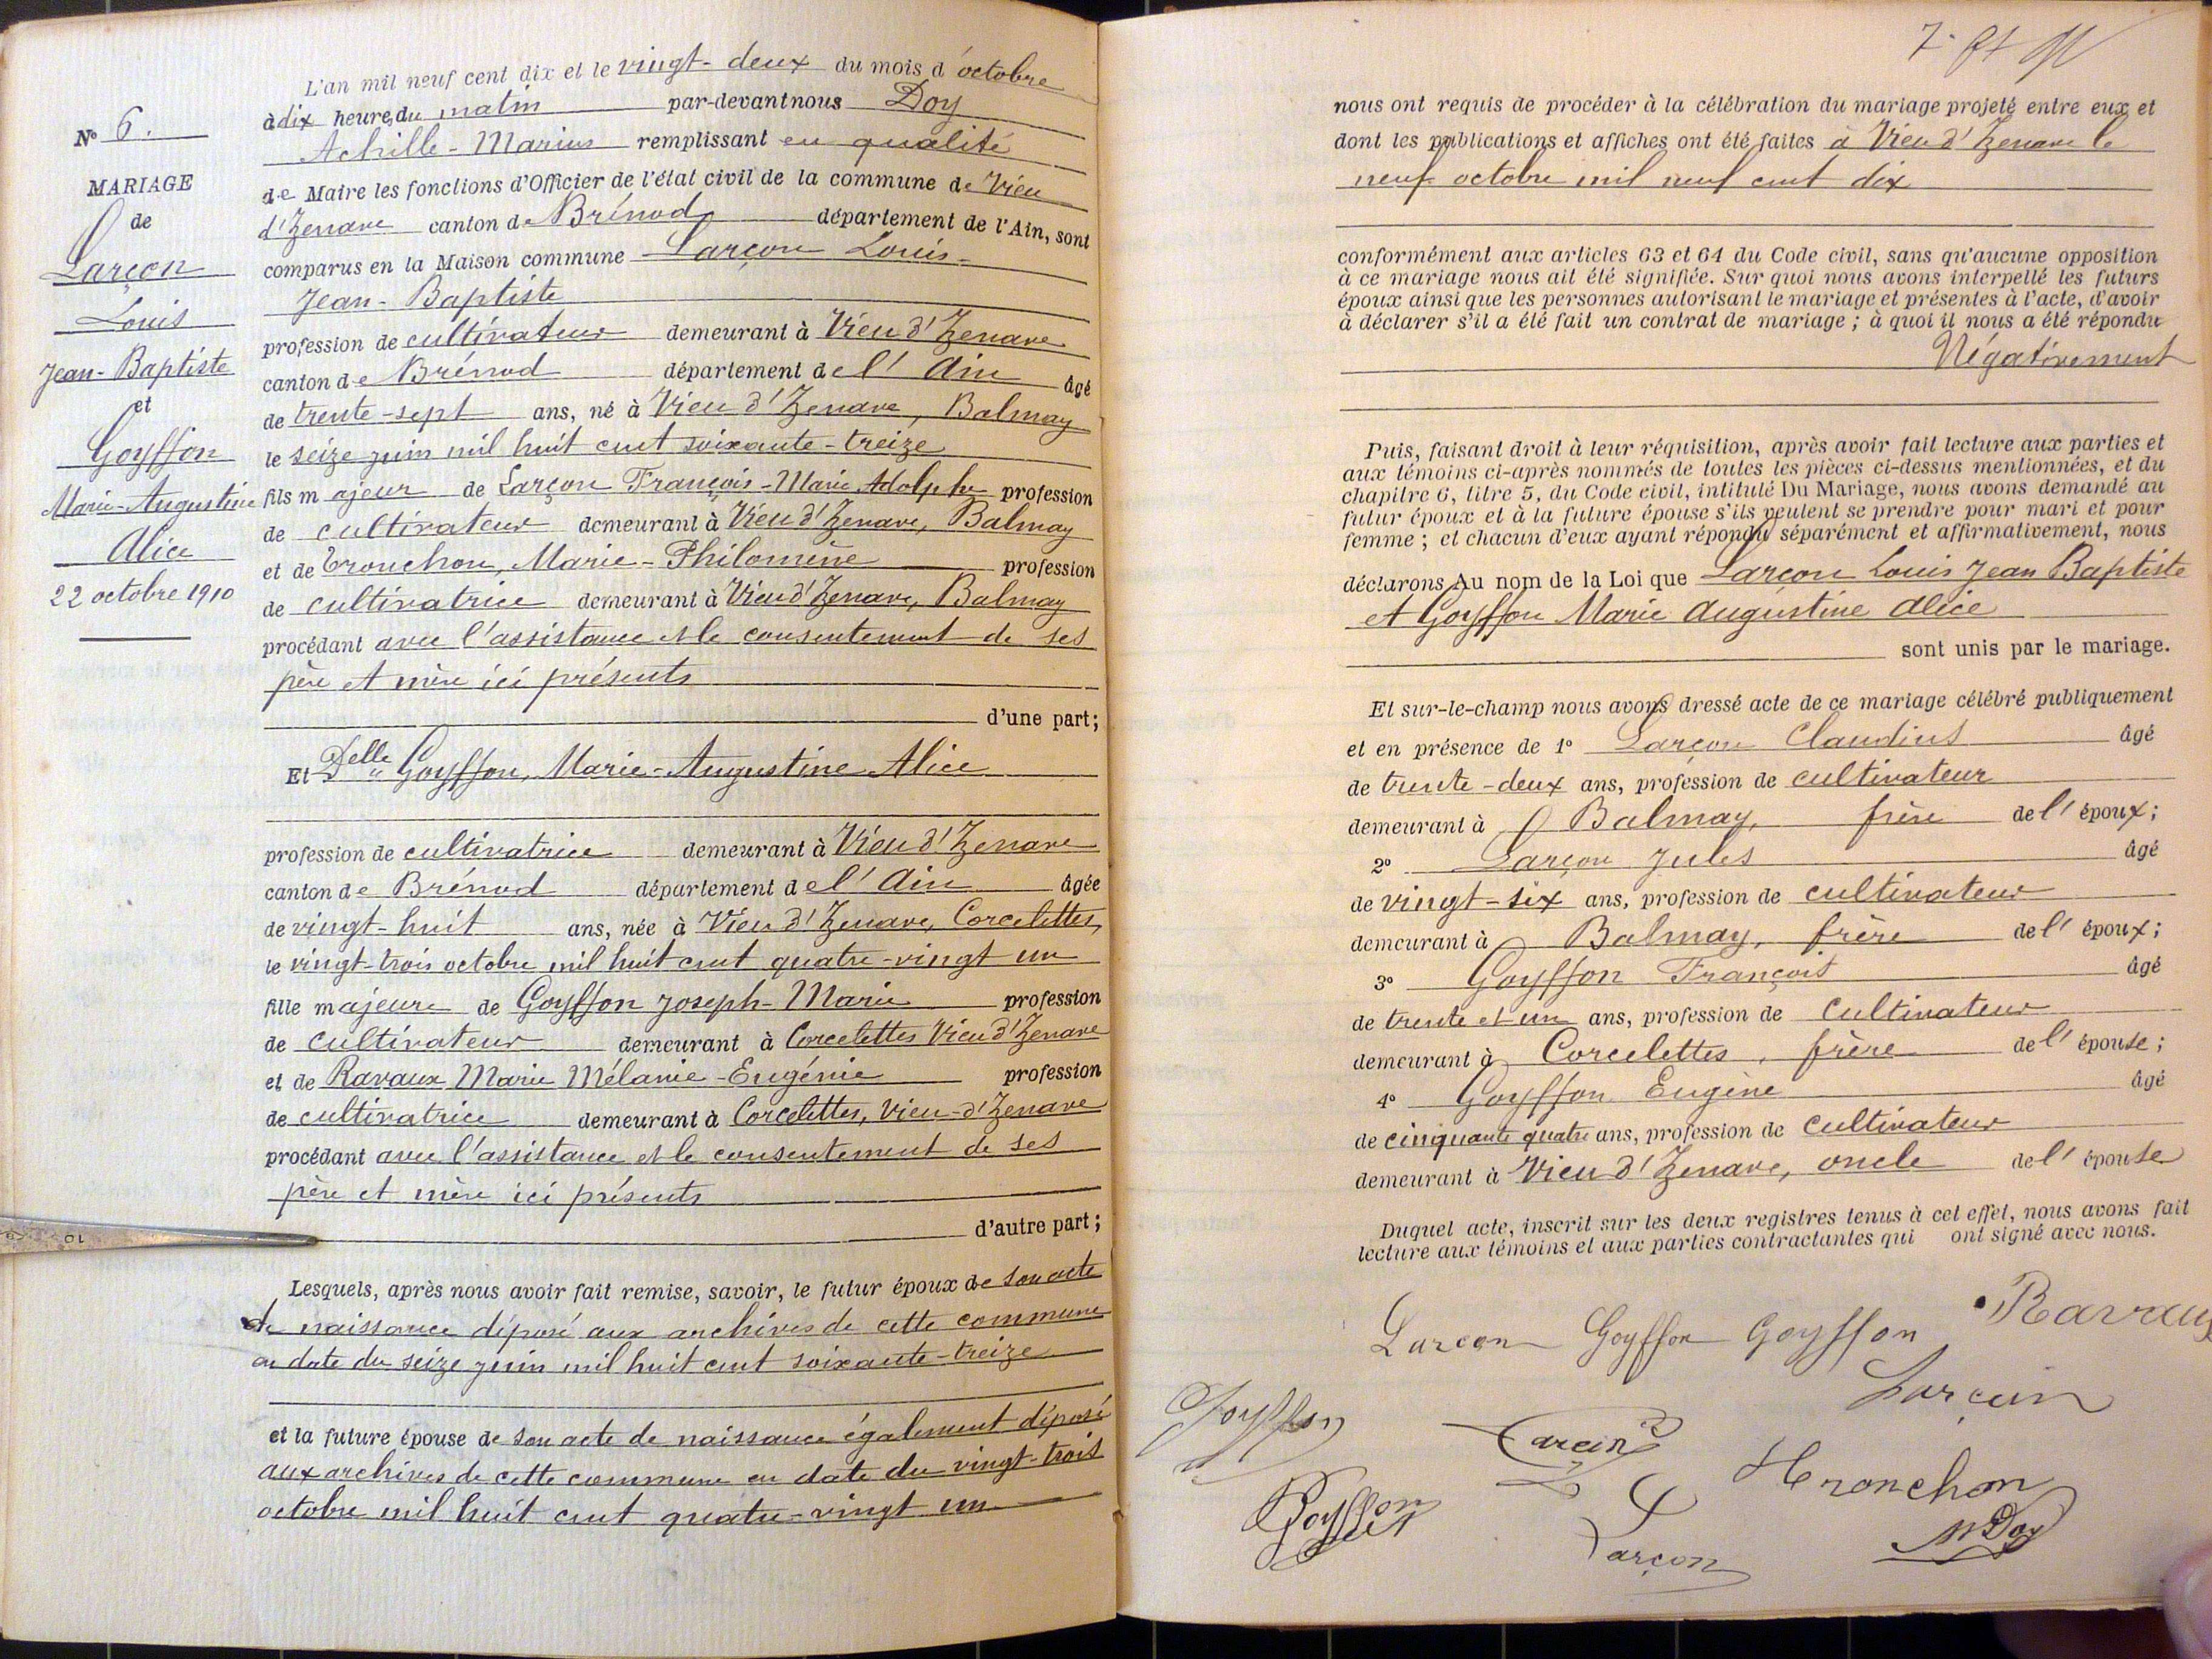 N° 6.
MARIAGE
de
Larçon
Louis
Jean-Baptiste
et
Goyffon
Marie-Augustine
Alice
22 octobre 1910
L'an mil neuf cent dix et le vingt-deux du mois d'octobre
à dix heures du matin par-devant nous Doy
Achille-Marius remplissant en qualité
de Maire les fonctions d'Officier de l'état civil de la commune de Vieu
d'Izenave canton de Brénod département de l'Ain, sont
comparus en la Maison commune Larçon Louis-
Jean-Baptiste
profession de cultivateur demeurant à Vieu d'Izenave
canton de Brénod département de l'Ain âgé
de trente-sept ans, né à Vieu d'Izenave, Balmay
le seize juin mil huit cent soixante-treize
fils majeur de Larçon François-Marie Adolphe profession
de cultivateur demeurant à Vieu d'Izenave, Balmay
et de Tronchon, Marie-Philomène profession
de cultivatrice demeurant à Vieu d'Izenave, Balmay
procédant avec l'assistance et le consentement de ses
père et mère ici présents
d'une part;
Et Delle Goyffon, Marie-Augustine Alice
profession de cultivatrice demeurant à Vieu d'Izenave
canton de Brénod département de l'Ain âgée
de vingt-huit ans, née à Vieu d'Izenave, Corcelettes,
le vingt-trois octobre mil huit cent quatre-vingt un
fille majeure de Goyffon Joseph-Marie profession
de cultivateur demeurant à Corcelettes Vieu d'Izenave
et de Ravaux Marie Mélanie-Eugénie profession
de cultivatrice demeurant à Corcelettes, Vieu-d'Izenave
procédant avec l'assistance et le consentement de ses
père et mère ici présents
d'autre part;
Lesquels, après nous avoir fait remise, savoir, le futur époux de son acte
de naissance déposé aux archives de cette commune
en date du seize juin mil huit cent soixante-treize
et la future épouse de son acte de naissance également déposé
aux archives de cette commune en date du vingt-trois
octobre mil huit cent quatre-vingt un
10
nous ont requis de procéder à la célébration du mariage projeté entre eux et
dont les publications et affiches ont été faites à Vieu d'Izenave le
neuf octobre mil neuf cent dix
conformément aux articles 63 et 64 du Code civil, sans qu'aucune opposition
à ce mariage nous ait été signifiée. Sur quoi nous avons interpellé les futurs
époux ainsi que les personnes autorisant le mariage et présentes à l'acte, d'avoir
à déclarer s'il a été fait un contrat de mariage; à quoi il nous a été répondu
Négativement
Puis, faisant droit à leur réquisition, après avoir fait lecture aux parties et
aux témoins ci-après nommés de toutes les pièces ci-dessus mentionnées, et du
chapitre 6, titre 5, du Code civil, intitulé Du Mariage, nous avons demandé au
futur époux et à la future épouse s'ils veulent se prendre pour mari et pour
femme; et chacun d'eux ayant répondu séparément et affirmativement, nous
déclarons Au nom de la Loi que Larçon Louis Jean Baptiste
et Goyffon Marie Augustine Alice
sont unis par le mariage.
Et sur-le-champ nous avons dressé acte de ce mariage célébré publiquement
et en présence de 1° Larçon Claudius âgé
de trente-deux ans, profession de cultivateur
demeurant à Balmay, frère de l'époux;
2° Larçon Jules âgé
de vingt-six ans, profession de cultivateur
demeurant à Balmay, frère de l'époux;
3° Goyffon François âgé
de trente et un ans, profession de cultivateur
demeurant à Corcelettes, frère de l'épouse;
4° Goyffon Eugène âgé
de cinquante quatre ans, profession de cultivateur
demeurant à Vieu d'Izenave, oncle de l'épouse
Duquel acte, inscrit sur les deux registres tenus à cet effet, nous avons fait
lecture aux témoins et aux parties contractantes qui ont signé avec nous.
Larçon Goyffon Goyffon Ravaux
Larçon
Goyffon Larçon
Tronchon
Goyffon
Larçon
Doy